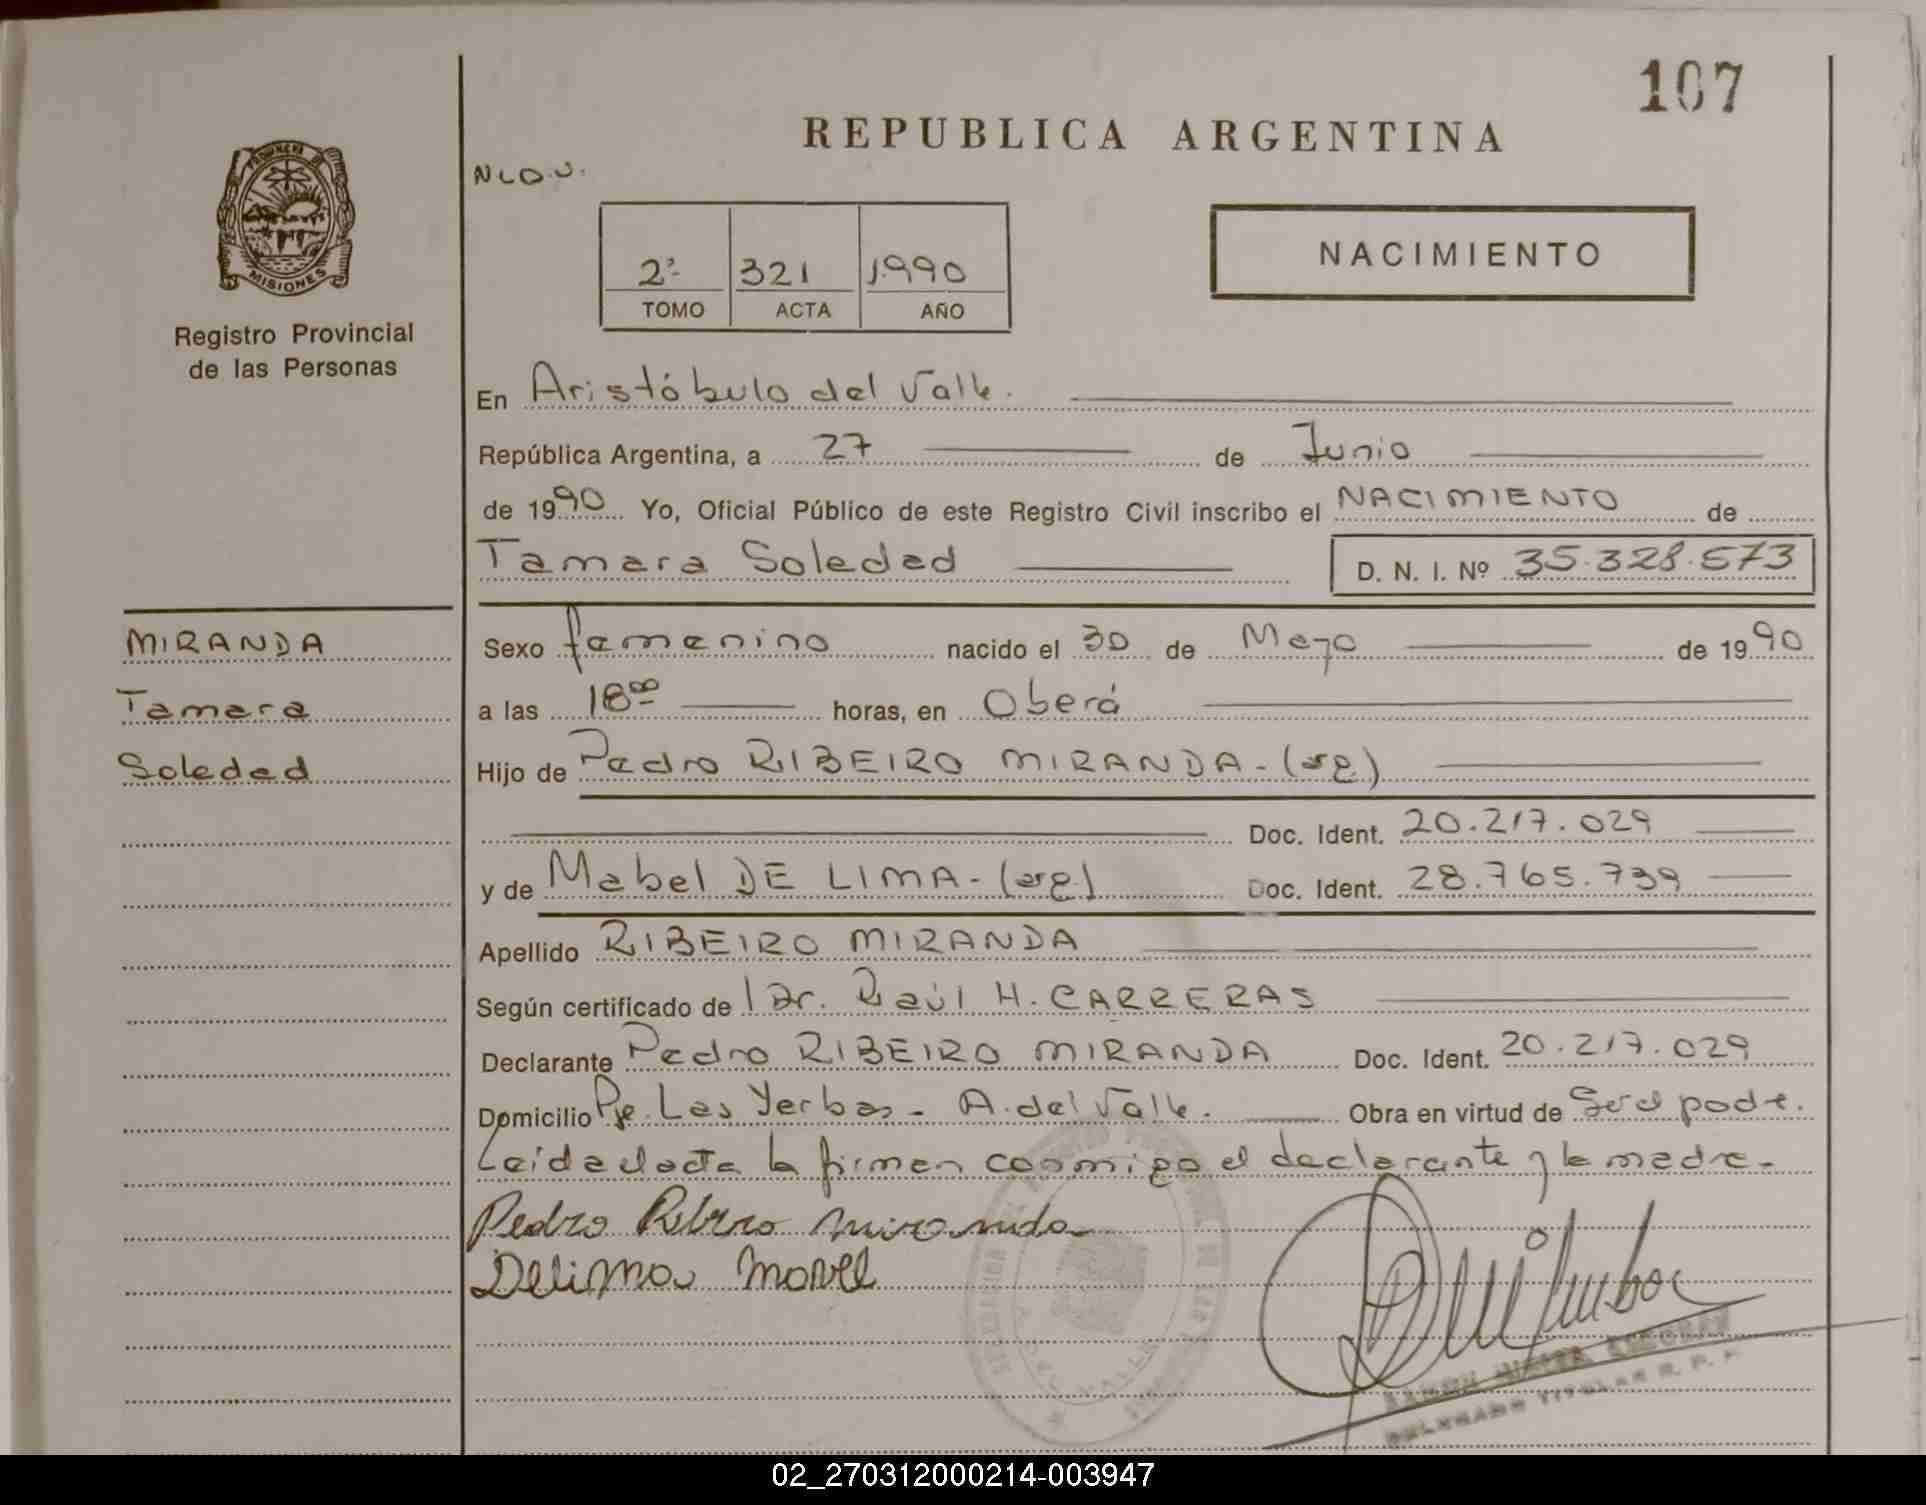 107
REPUBLICA ARGENTINA
PROVINCIA DE
MISIONES
Registro Provincial
de las Personas
2º 321 1990
TOMO ACTA AÑO
NACIMIENTO
En Aristóbulo del Valle.
República Argentina, a 27 de Junio
de 1990 Yo, Oficial Público de este Registro Civil inscribo el NACIMIENTO de
Tamara Soledad D. N. I. Nº 35.328.573
MIRANDA
Tamara
Soledad
Sexo femenino nacido el 30 de Mayo de 1990
a las 18⁰⁰ horas, en Oberá
Hijo de Pedro RIBEIRO MIRANDA - (arg)
Doc. Ident. 20.217.029
y de Mabel DE LIMA - (arg) Doc. Ident. 28.765.739
Apellido RIBEIRO MIRANDA
Según certificado de l Dr. Raúl H. CARRERAS
Declarante Pedro RIBEIRO MIRANDA Doc. Ident. 20.217.029
Domicilio Pje. Las Yerbas - A. del Valle. Obra en virtud de Ser el padre.
Leída el acta la firman conmigo el declarante y la madre.
Pedro Ribero miranda
Delima Mavel
DELEGADO TITULAR R. P. P.
02_270312000214-003947